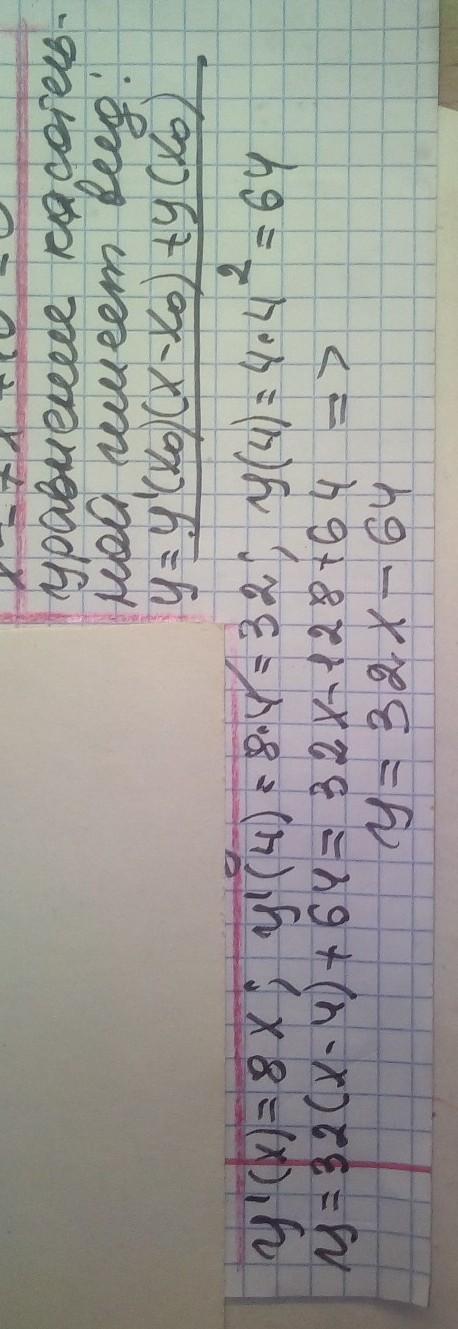 уравнение касатель-
ной имеет вид:
y = y'(x₀)(x - x₀) + y(x₀)
y'(x) = 8x; y'(4) = 8·4 = 32; y(4) = 4·4² = 64
y = 32(x - 4) + 64 = 32x - 128 + 64 =>
y = 32x - 64